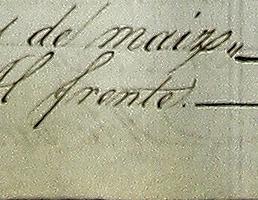 de maiz „
Al frente.